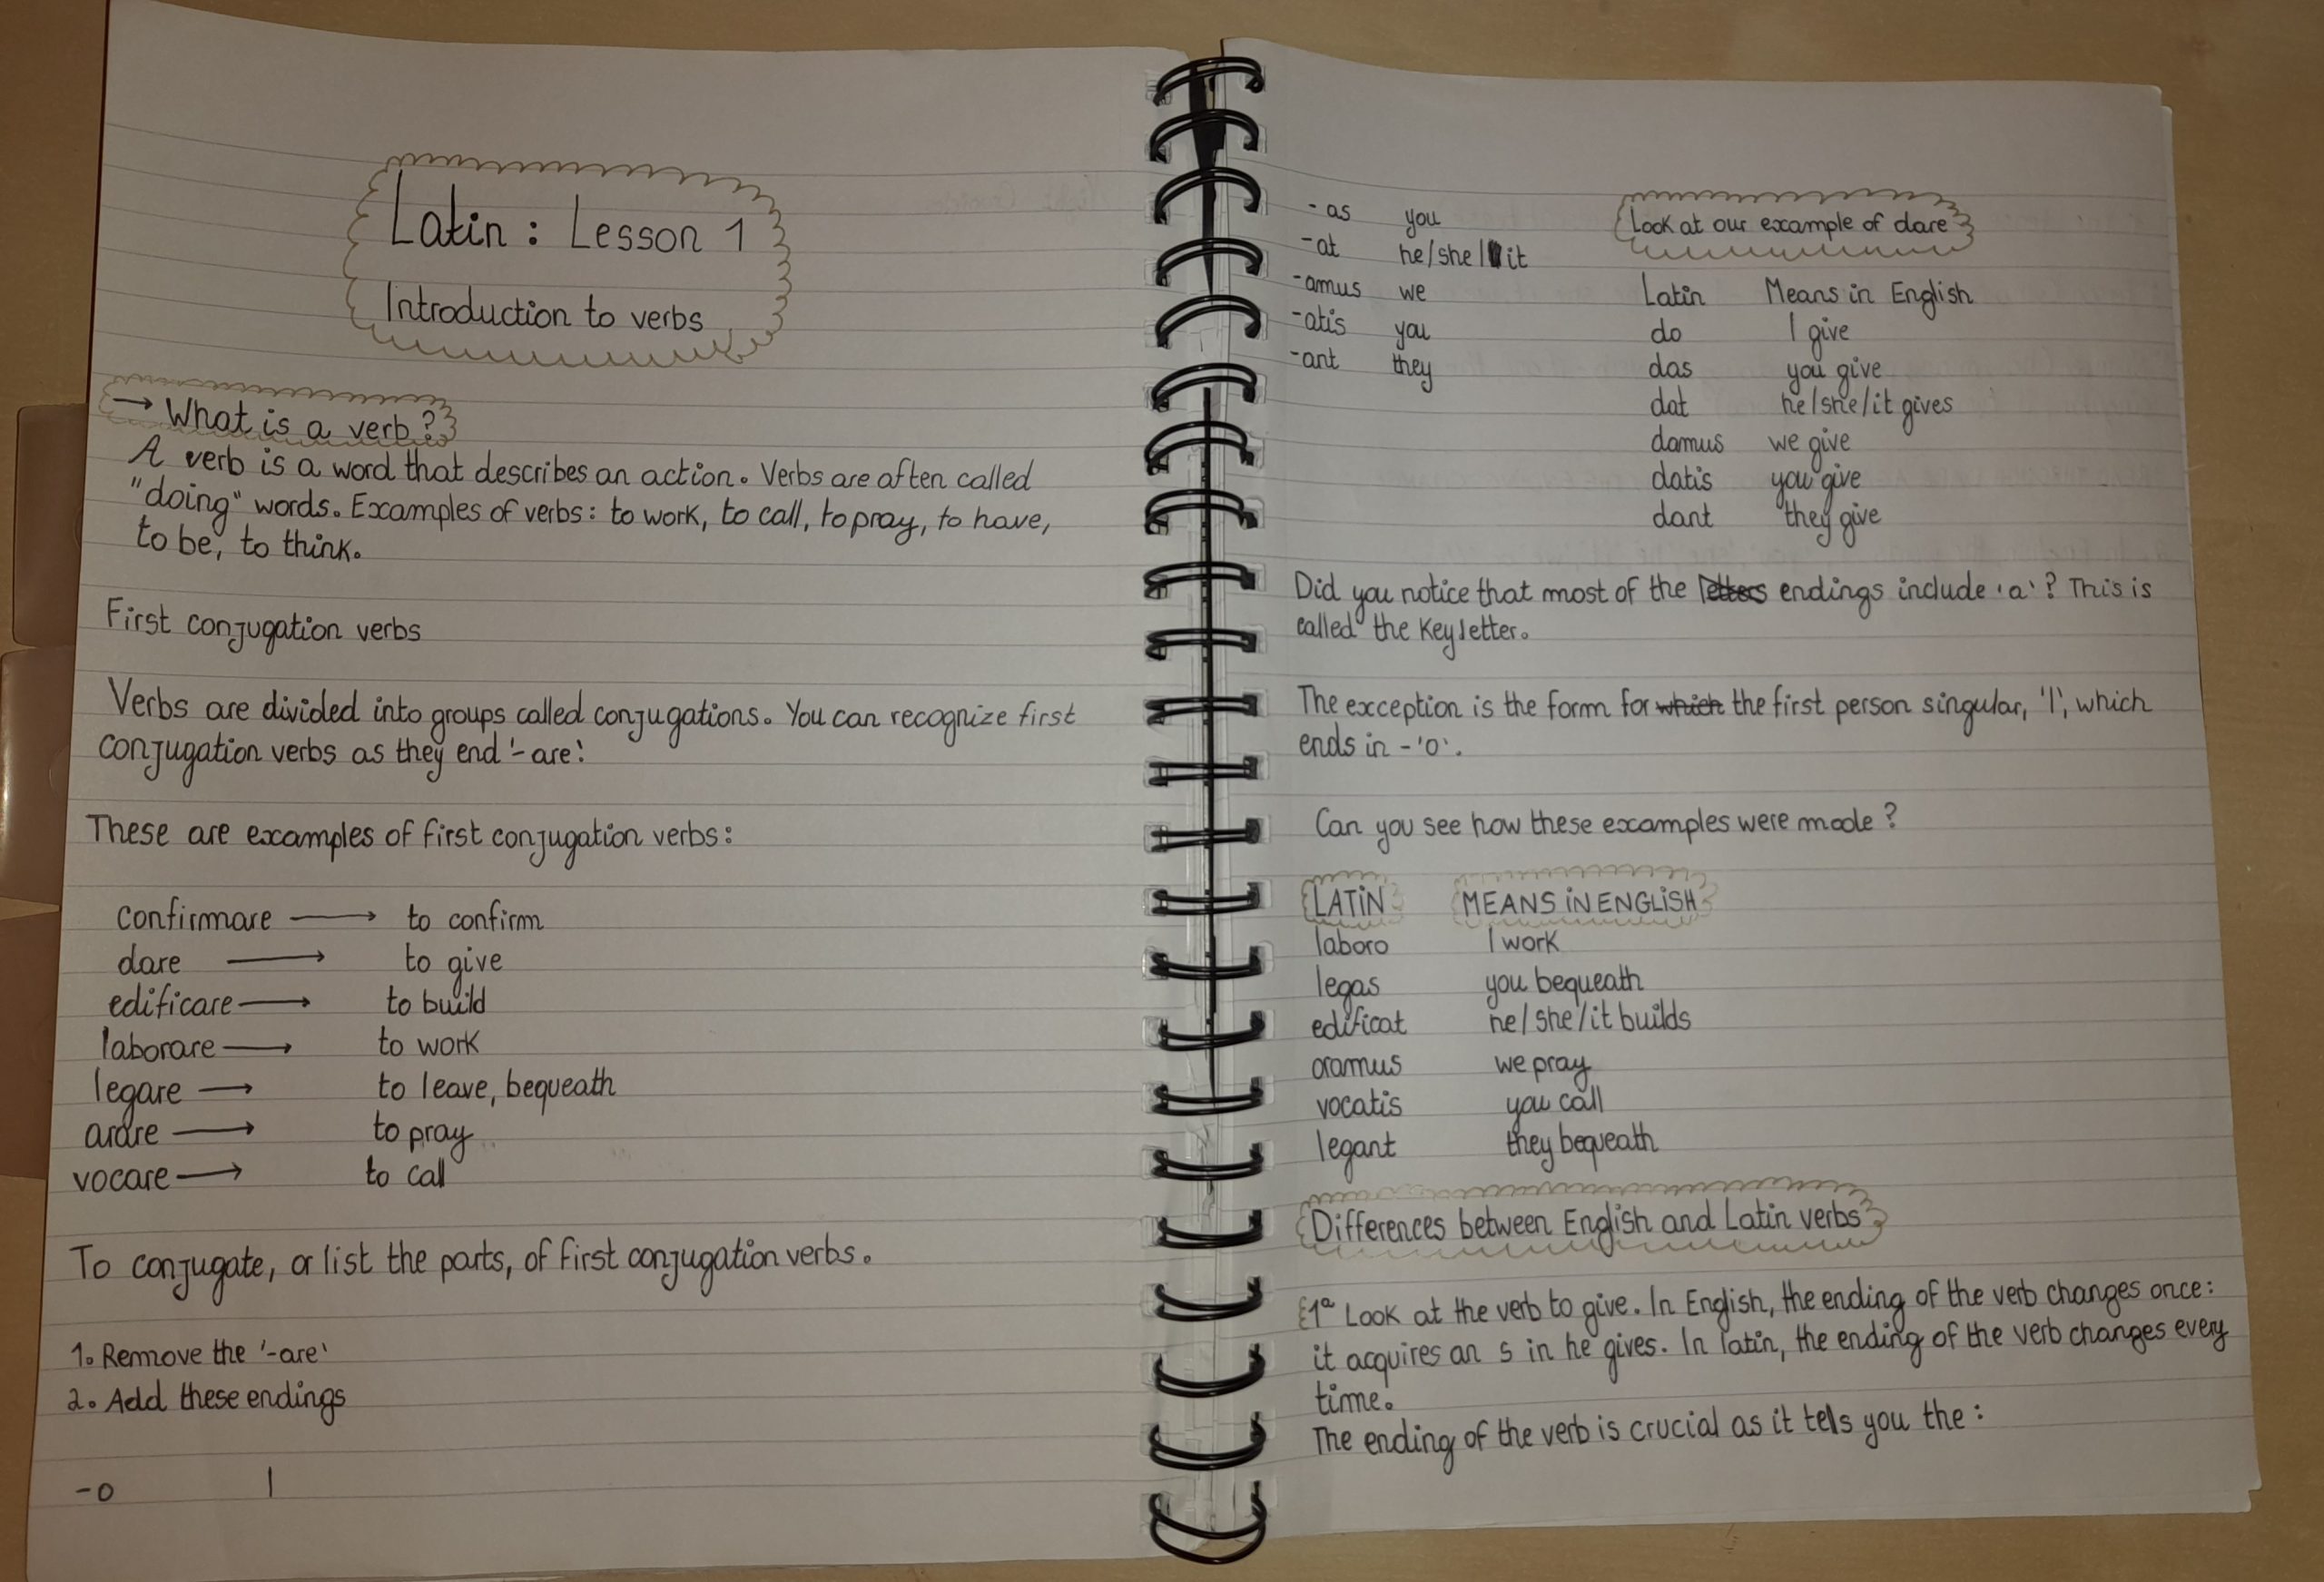 Latin : Lesson 1
Introduction to verbs
→ What is a verb?
A verb is a word that describes an action. Verbs are often called
"doing" words. Examples of verbs: to work, to call, to pray, to have,
to be, to think.
First conjugation verbs
Verbs are divided into groups called conjugations. You can recognize first
conjugation verbs as they end '-are'.
These are examples of first conjugation verbs:
confirmare → to confirm
dare → to give
edificare → to build
laborare → to work
legare → to leave, bequeath
arare → to pray
vocare → to call
To conjugate, or list the parts, of first conjugation verbs.
1. Remove the '-are'
2. Add these endings
-o I
-as you
-at he/she/it
-amus we
-atis you
-ant they
Look at our example of dare
Latin Means in English
do I give
das you give
dat he/she/it gives
damus we give
datis you give
dant they give
Did you notice that most of the letters endings include 'a'? This is
called the Key letter.
The exception is the form for which the first person singular, 'I', which
ends in -'o'.
Can you see how these examples were made?
LATIN MEANS IN ENGLISH
laboro I work
legas you bequeath
edificat he/she/it builds
oramus we pray
vocatis you call
legant they bequeath
Differences between English and Latin verbs
1ª Look at the verb to give. In English, the ending of the verb changes once:
it acquires an s in he gives. In latin, the ending of the verb changes every
time.
The ending of the verb is crucial as it tells you the: